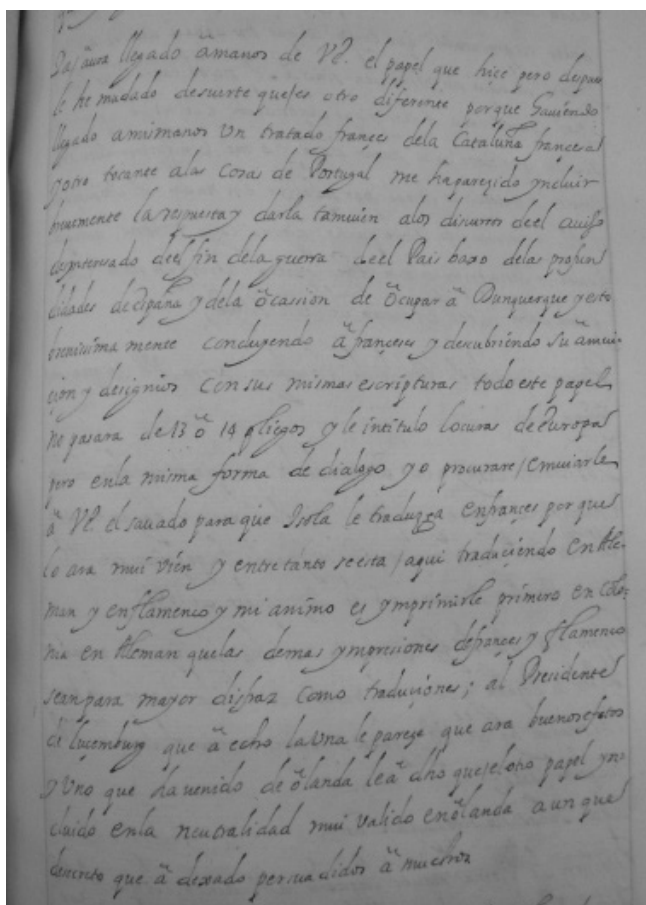 Ya aura llegado âmanos de VE. el papel que hice pero despues
le he mudado desuerte que es otro diferente porque haviendo
llegado amismanos un tratado françes dela Cataluña françesa
y otro tocante alas cosas de Portugal me ha pareçido yncluir
brevemente la respuesta y darla tamvien alos discursos deel aviso
desynteresado deel fin dela guerra deel Pais baxo delas profun
didades de españa y dela ôcassion de ôcupar â Dunquerque y esto
brevissima mente concluyendo â françeses y descubriendo su âmvi-
çion y designios con sus mismas escripturas todo este papel
no pasara de 13 ô 14 pliegos y le intitulo locuras de Europa
pero enla misma forma de dialogo yo procurare emviarle
â VE. el savado para que Isola le traduzga enfrançes porque
lo ara mui vien y entretanto se esta aqui traduçiendo en Ale-
man y enflamenco y mi animo es ymprimirle primero en Colo-
nia en Aleman quelas demas ympresiones defrançes y flamenco
sean para mayor disfraz como traduçiones; al Presidente
de luçemburg que â echo la una le pareçe que ara buenos efetos
y uno que ha venido de ôlanda le â dho que el otro papel yn-
cluido enla neutralidad mui valido en ôlanda aunque
descreto que â dexado persuadidos â muchos